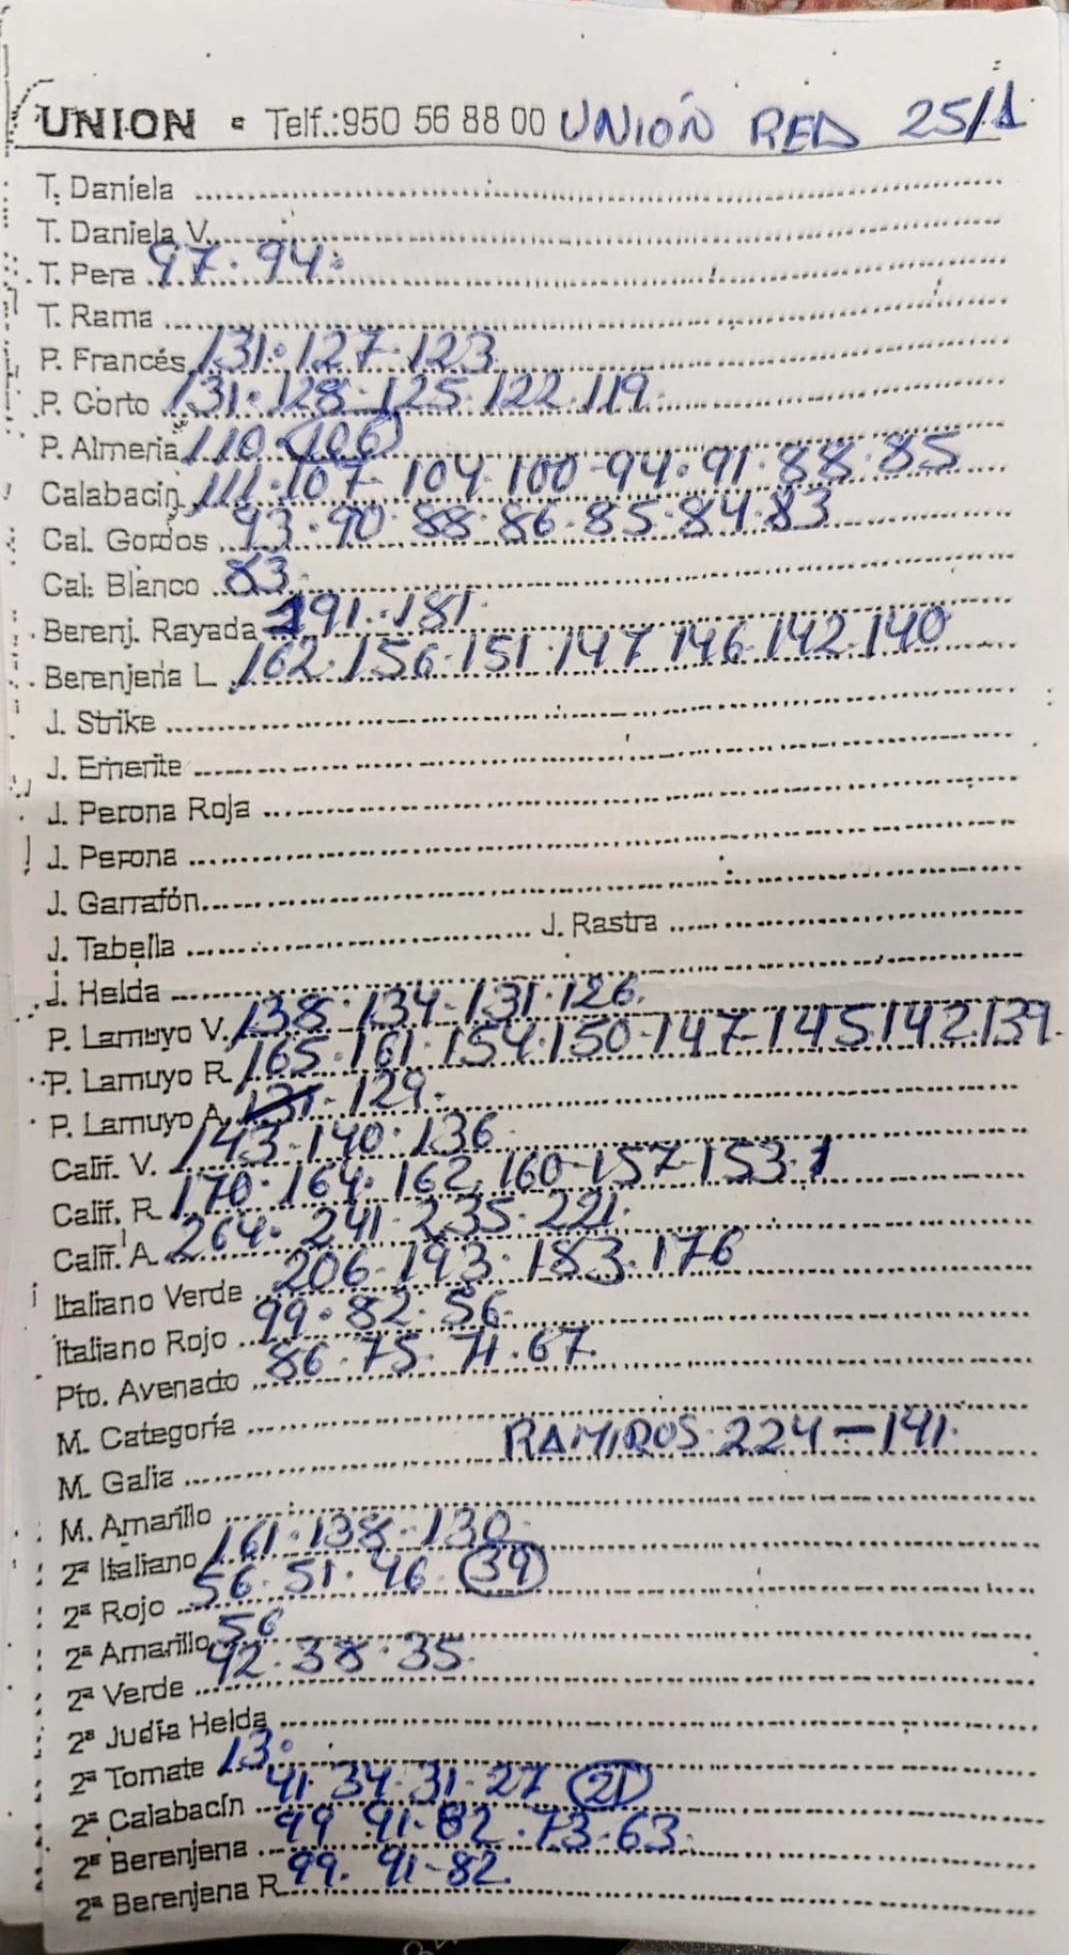 UNION - Telf.:950 56 88 00 UNIÓN RED 25/1
T. Daniela
T. Daniela V.
T. Pera 97. 94.
T. Rama
P. Francés 131. 127. 123
P. Corto 131. 128. 125. 122. 119.
P. Almeria 110 (106)
Calabacin 111. 107. 104. 100. 94. 91. 88. 85
Cal. Gordos 93. 90. 88. 86. 85. 84. 83
Cal. Blanco 83.
Berenj. Rayada 191. 181.
Berenjena L 162. 156. 151. 147 146. 142. 140
J. Strike
J. Emerite
J. Perona Roja
J. Perona
J. Garrafón
J. Tabella J. Rastra
J. Helda
P. Lamuyo V. 138. 134. 131. 126.
P. Lamuyo R 165. 161. 154. 150. 147. 145. 142. 139.
P. Lamuyo A. 129.
Calif. V. 143. 140. 136
Calif. R 170. 164. 162. 160. 157. 153. 1
Calif. A 264. 241. 235. 221.
Italiano Verde 206. 193. 183. 176
Italiano Rojo 99. 82. 56.
Pto. Avenado 86. 75. 71. 67.
M. Categoría
M. Galia RAMIROS 224-141.
M. Amarillo
2ª Italiano 161. 138. 130.
2ª Rojo 56. 51. 46. (39)
2ª Amarillo 56
2ª Verde 42. 38. 35.
2ª Judía Helda
2ª Tomate 13.
2ª Calabacín 41. 34. 31. 27 (21)
2ª Berenjena 99 91. 82. 73. 63.
2ª Berenjena R 99. 91-82.